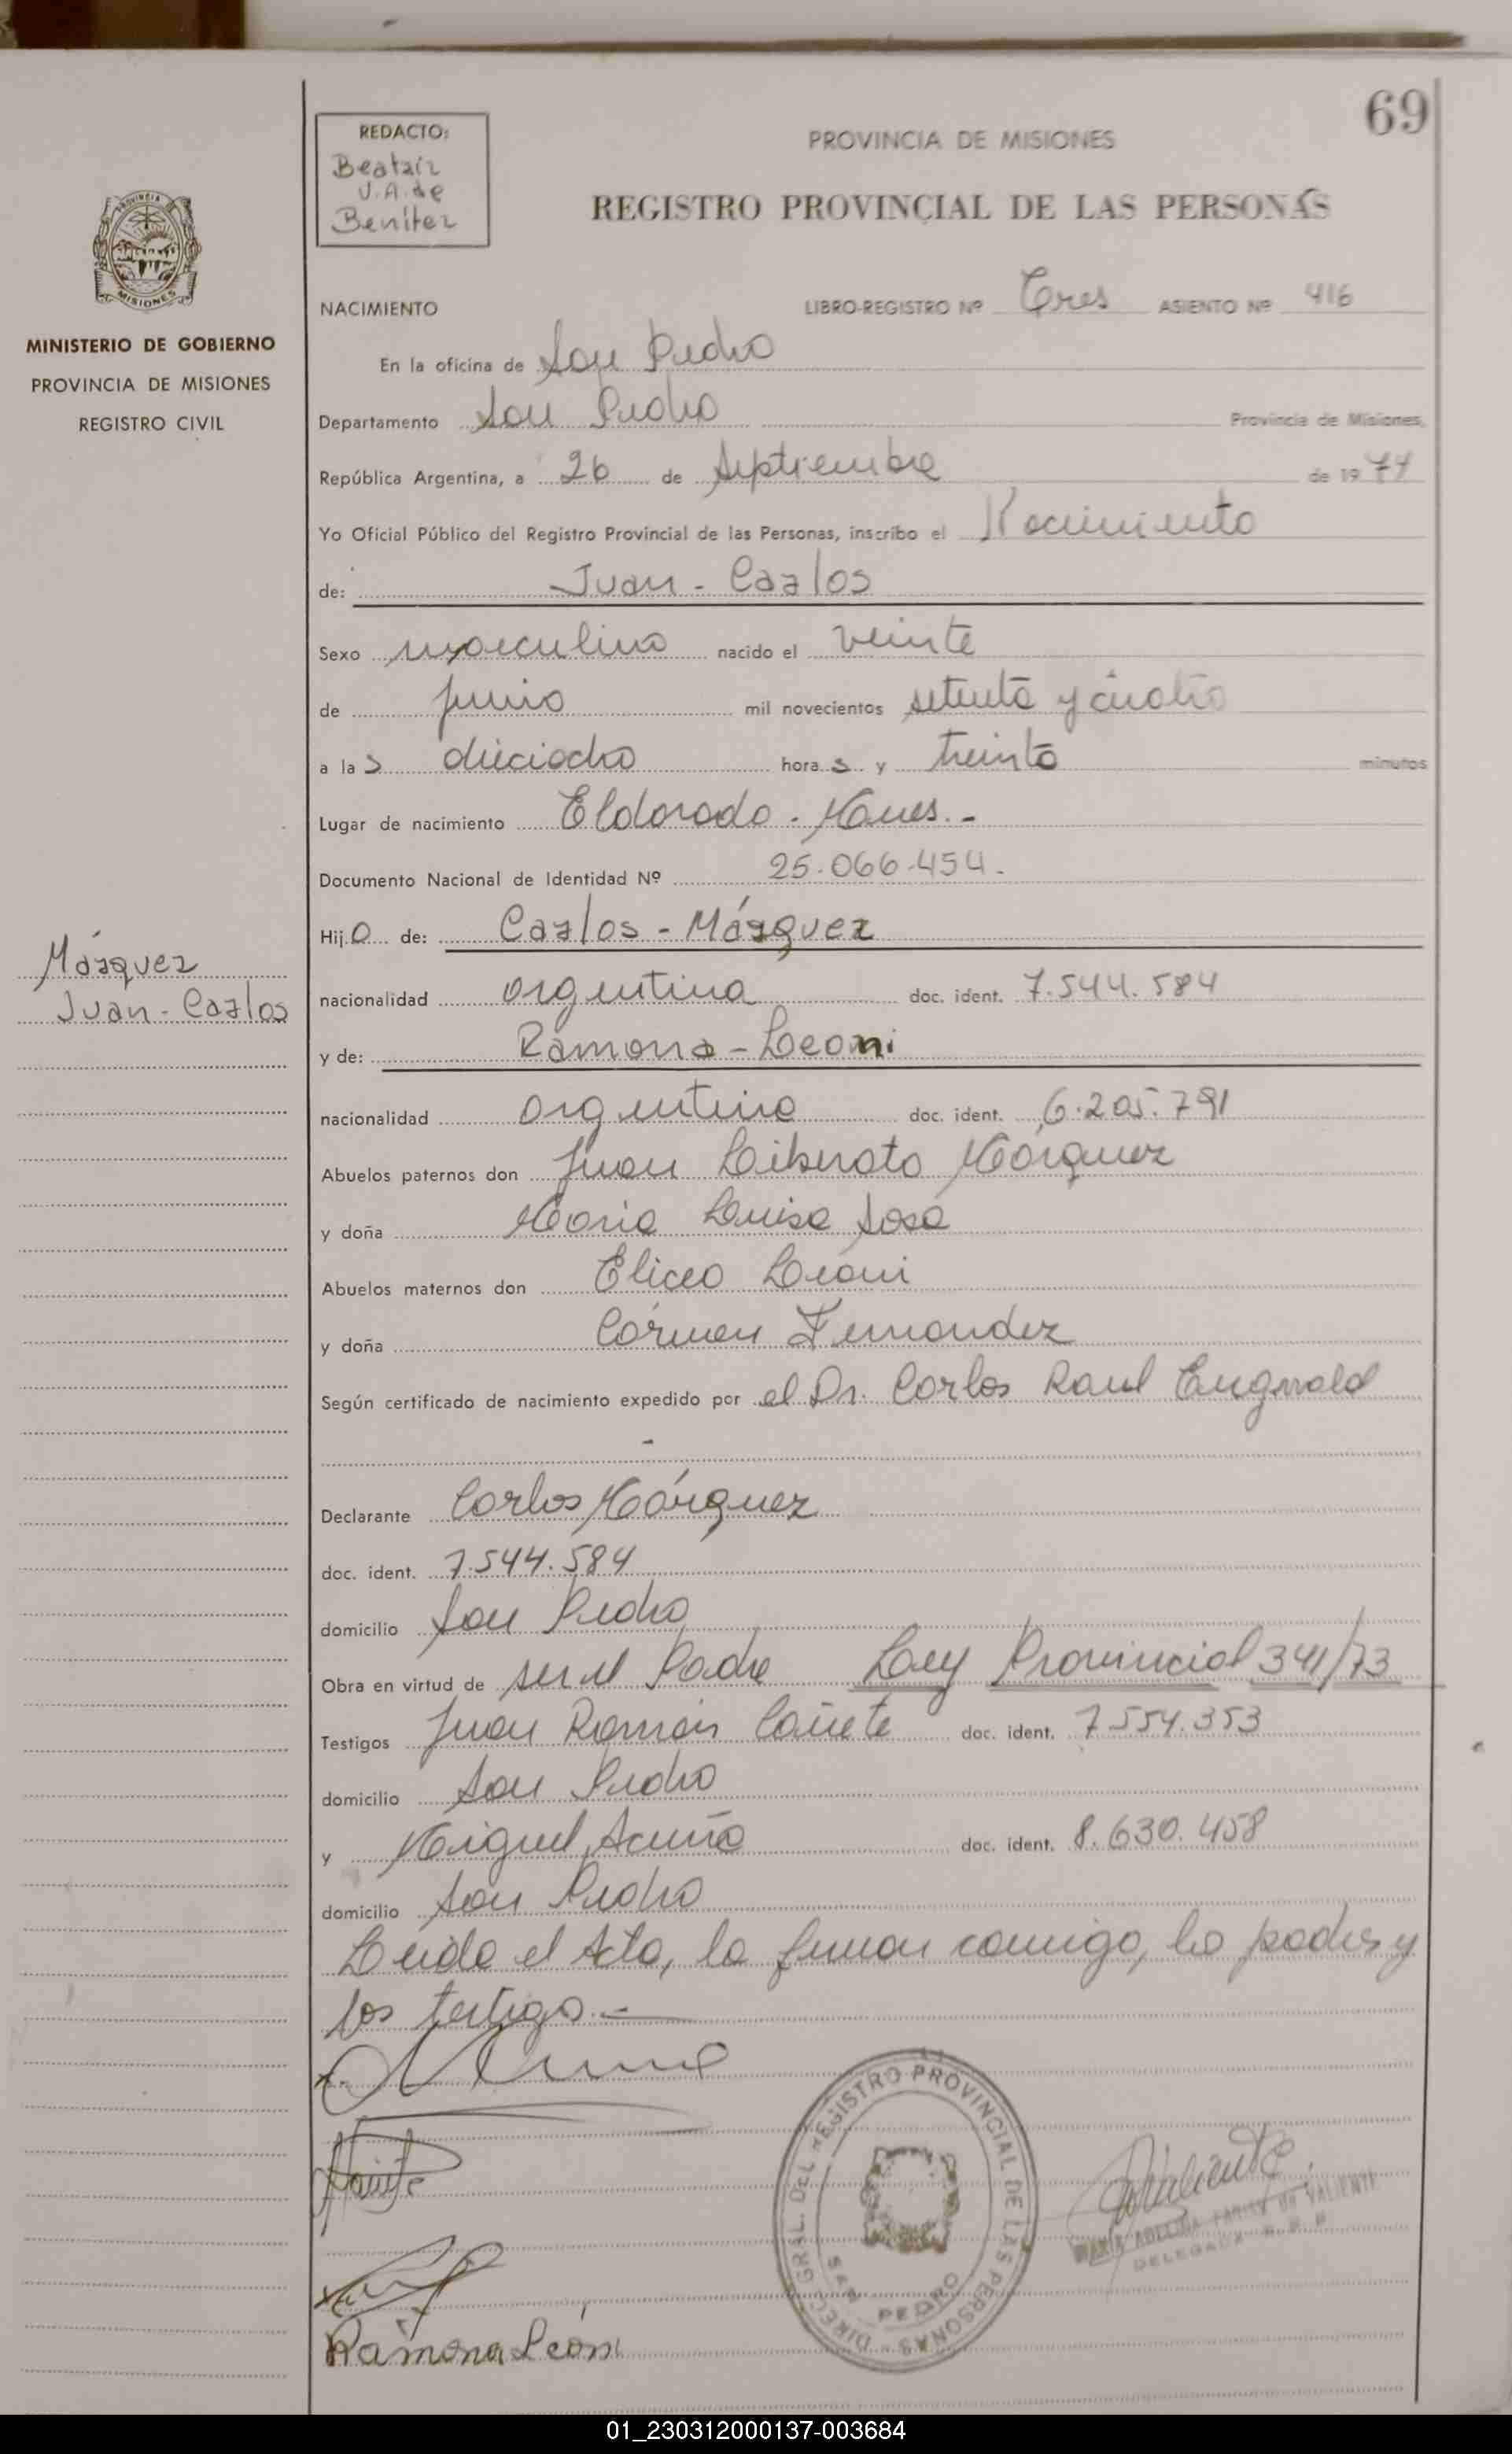 69
REDACTO:
Beatriz
V.A. de
Benítez
PROVINCIA DE MISIONES
REGISTRO PROVINCIAL DE LAS PERSONAS
PROVINCIA
MISIONES
MINISTERIO DE GOBIERNO
PROVINCIA DE MISIONES
REGISTRO CIVIL
NACIMIENTO LIBRO-REGISTRO Nº Tres ASIENTO Nº 416
En la oficina de San Pedro
Departamento San Pedro Provincia de Misiones,
República Argentina, a 26 de Septiembre de 1974
Yo Oficial Público del Registro Provincial de las Personas, inscribo el Nacimiento
de: Juan - Carlos
Sexo masculino nacido el veinte
de junio mil novecientos setenta y cuatro
a las dieciocho horas y treinta minutos
Lugar de nacimiento Eldorado - Mnes. -
Documento Nacional de Identidad Nº 25.066.454.
Hijo de: Carlos - Márquez
Márquez
Juan - Carlos
nacionalidad argentina doc. ident. 7.544.584
y de: Ramona - Leoni
nacionalidad argentina doc. ident. 6.205.791
Abuelos paternos don Juan Liberato Márquez
y doña María Luisa Sosa
Abuelos maternos don Eliceo Leoni
y doña Cármen Fernandez
Según certificado de nacimiento expedido por el Dr. Carlos Raul Engwald
Declarante Carlos Márquez
doc. ident. 7.544.584
domicilio San Pedro
Obra en virtud de ser el Padre Ley Provincial 341/73
Testigos Juan Ramón Cañete doc. ident. 7.554.353
domicilio San Pedro
y Miguel Acuña doc. ident. 8.630.458
domicilio San Pedro
Leida el Acta, la firman conmigo, los padres y
los testigos.-
Ramona León
DIREC. GRAL. DEL REGISTRO PROVINCIAL DE LAS PERSONAS
SAN PEDRO
MARIA ADELINA FARIÑA DE VALIENTE
DELEGADA R.P.P.
01_230312000137-003684